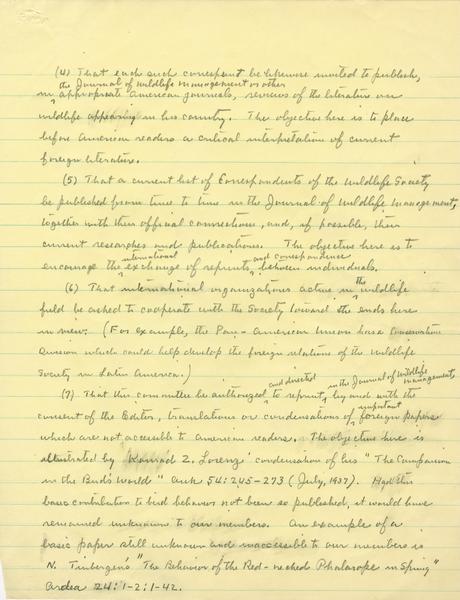 (4) That each such correspondent be likewise invited to publish,
the Journal of Wildlife Management or other
in appropriate American journals, reviews of the literature on
wildlife appearing in his country. The objective here is to place
before American readers a critical interpretation of current
foreign literature.
(5) That a current list of Correspondents of the Wildlife Society
be published from time to time in the Journal of Wildlife Management,
together with their official connections, and, if possible, their
current researches and publications. The objective here is to
international and correspondence
encourage the exchange of reprints between individuals.
the
(6) That international organizations active in wildlife
field be asked to cooperate with the Society toward the ends here
in view. (For example, the Pan-American Union has a Conservation
Division which could help develop the foreign relations of the Wildlife
Society in Latin America.)
and directed in the Journal of Wildlife Management,
(7) That this committee be authorized to reprint, by and with the
important
consent of the Editor, translations or condensations of foreign papers
which are not accessible to American readers. The objective here is
illustrated by Konrad Z. Lorenz' condensation of his "The Companion
in the Bird's World" Auk 54:245-273 (July, 1937). Had this
basic contribution to bird behavior not been so published, it would have
remained unknown to our members. An example of a
basic paper still unknown and inaccessible to our members is
N. Tinbergen's "The Behavior of the Red-necked Phalarope in Spring"
Ardea 24:1-2:1-42.